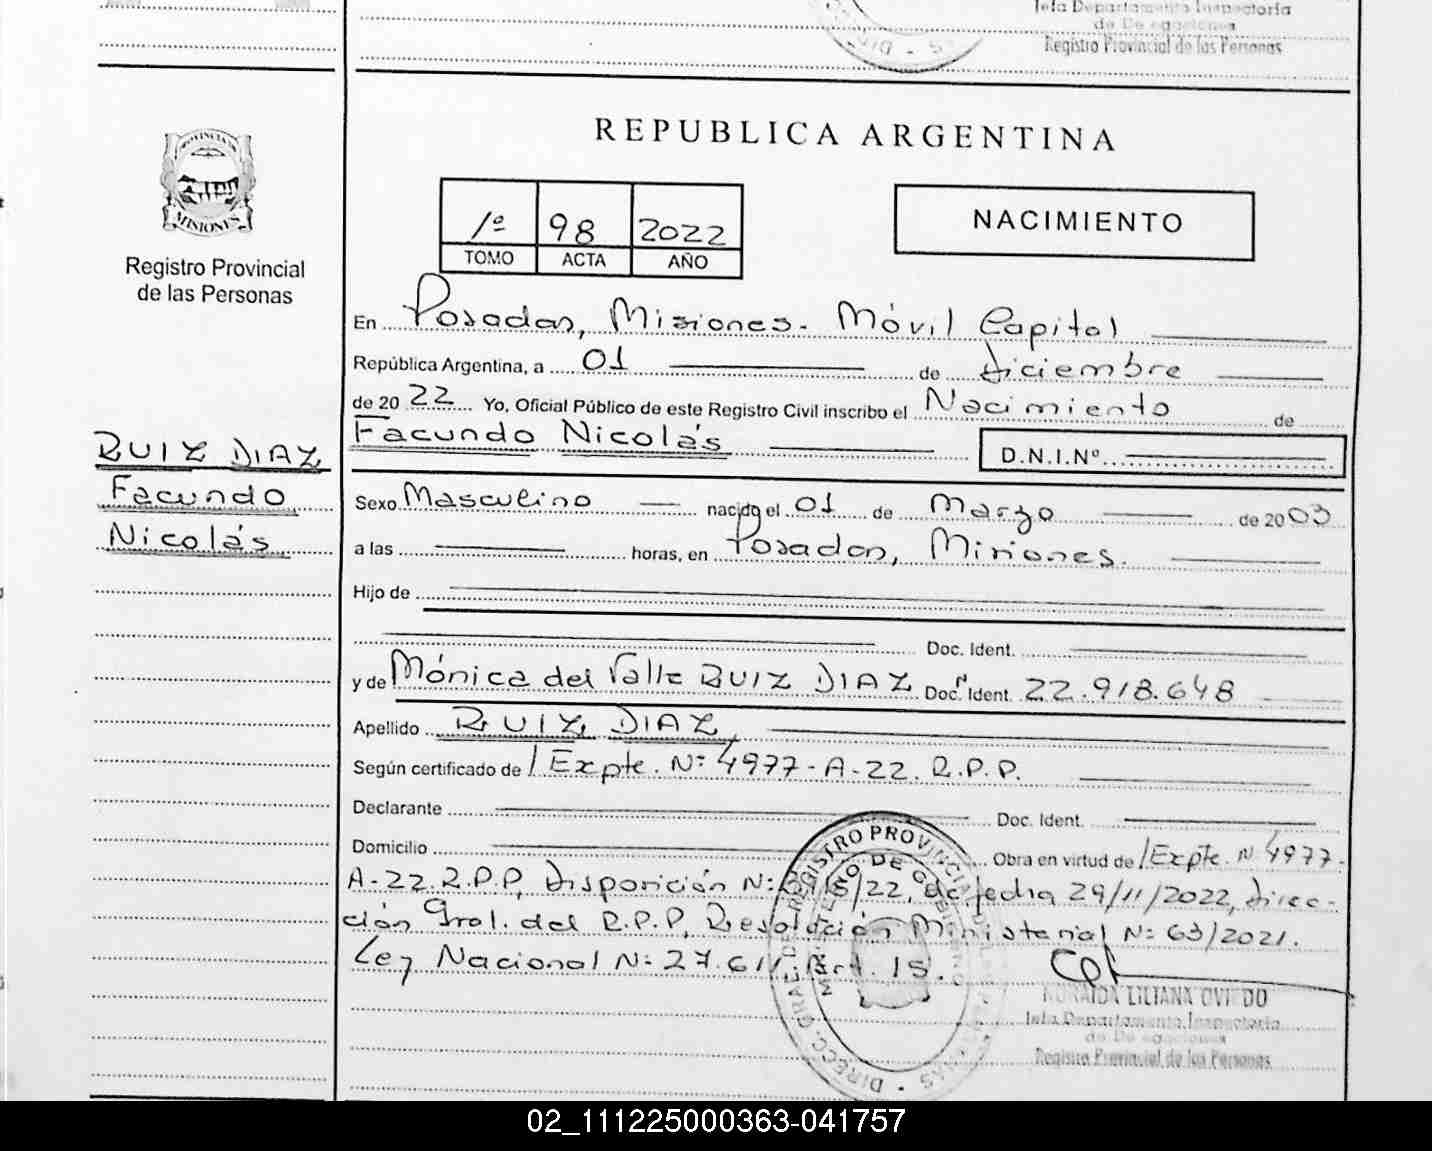 Jefa Departamento Inspectoria
Registro Provincial de las Personas
PROVINCIA DE
MISIONES
Registro Provincial
de las Personas
RUIZ DIAZ
Facundo
Nicolás
REPUBLICA ARGENTINA
1º 98 2022
TOMO ACTA AÑO
NACIMIENTO
En Posadas, Misiones- Móvil Capital
República Argentina, a 01 de diciembre
de 20 22 Yo, Oficial Público de este Registro Civil inscribo el Nacimiento de
Facundo Nicolás D.N.I.Nº
Sexo Masculino nacido el 01 de Marzo de 20 03
a las horas, en Posadas, Misiones.
Hijo de
Doc. Ident.
y de Mónica del Valle RUIZ DIAZ Doc. Ident. Nº 22.918.648
Apellido RUIZ DIAZ
Según certificado de / Expte. Nº 4977-A-22. R.P.P.
Declarante Doc. Ident.
Domicilio Obra en virtud de / Expte. Nº 4977-
A-22 R.P.P, Disposición Nº /22, de fecha 29/11/2022, Direc-
ción Gral. del R.P.P, Resolución Ministerial Nº 63/2021.
Ley Nacional Nº 27.611, Art. 15.
LILIANA OVIEDO
Jefa Departamento Inspectoria
Registro Provincial de las Personas
02_111225000363-041757